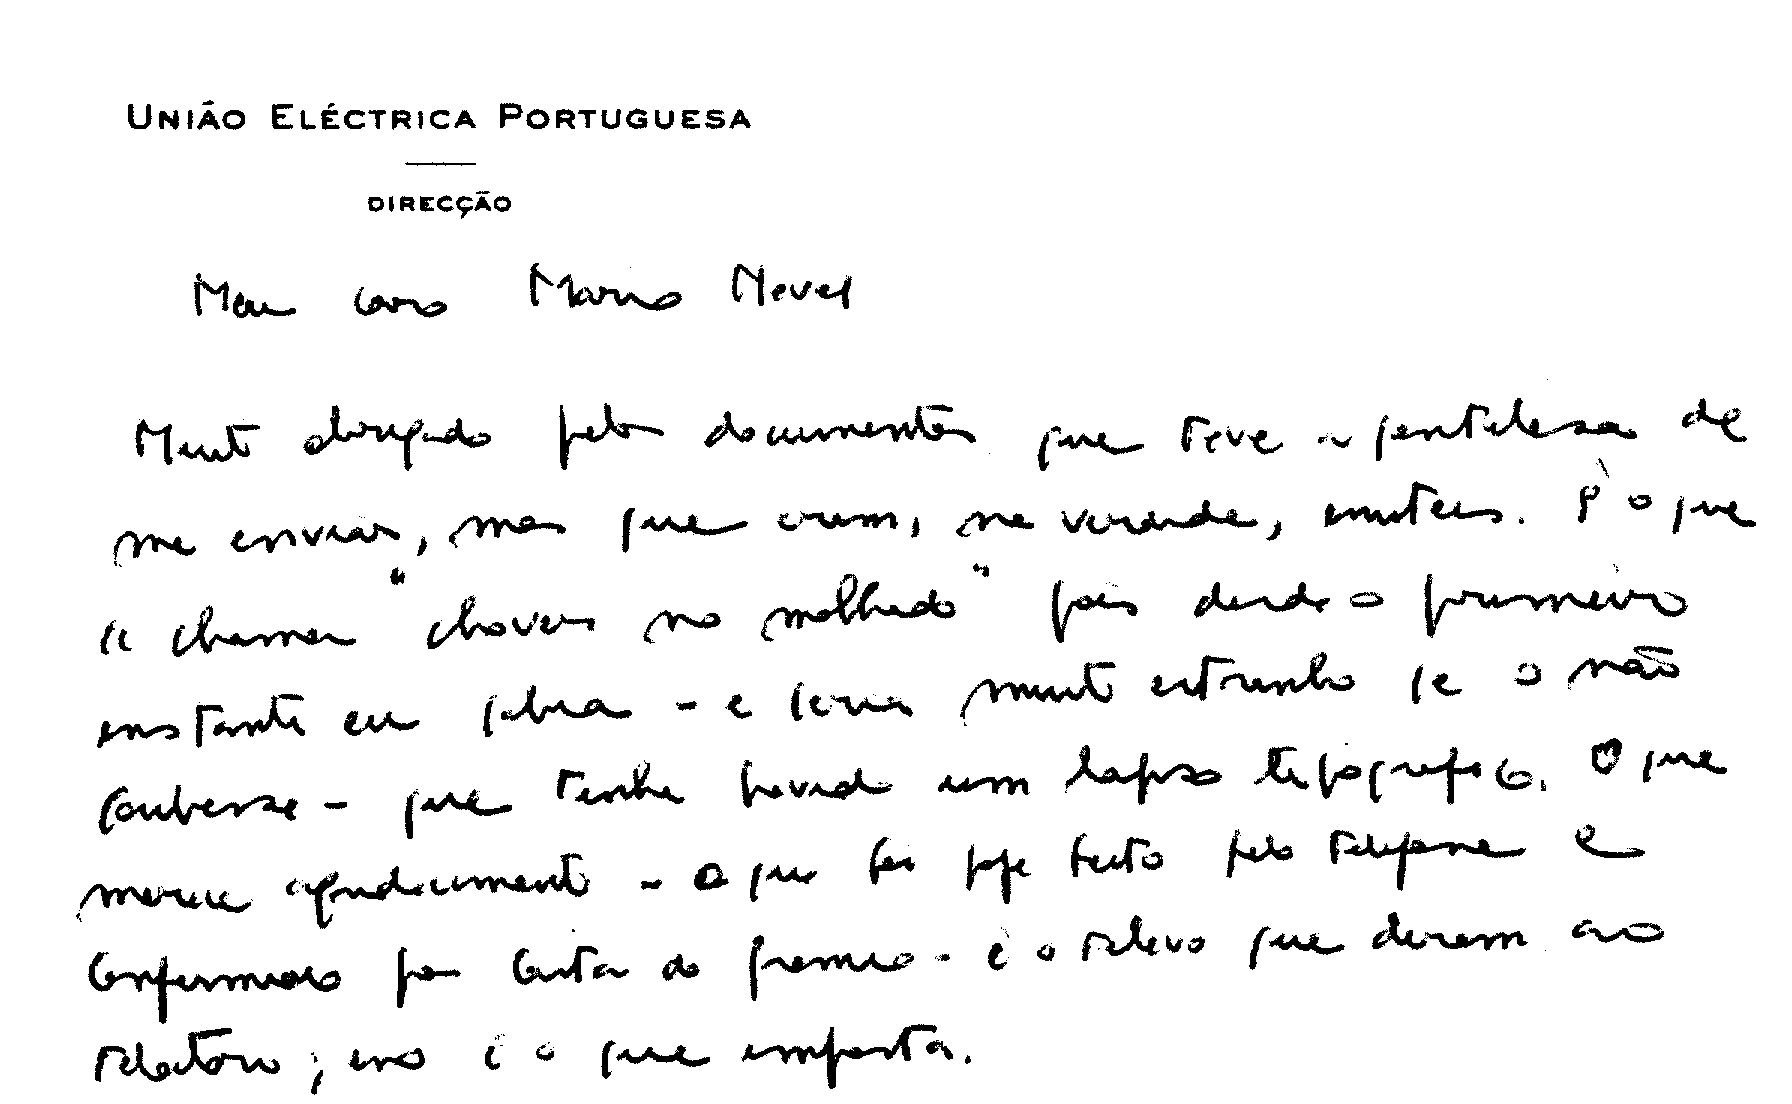 UNIÃO ELÉCTRICA PORTUGUESA
DIRECÇÃO
Meu caro Mario Neves
Muito obrigado pelos documentos que teve a gentilesa de
me enviar, mas que eram, na verdade, inuteis. É o que
se chama "chover no molhado" pois desde o primeiro
instante eu sabia - e seria muito estranho se o não
soubesse - que tinha havido um lapso tipografico. O que
merece agradecimento - o que foi hoje feito pelo telefone e
confirmado por carta do gremio - é o relevo que deram ao
relatório; isso é o que importa.